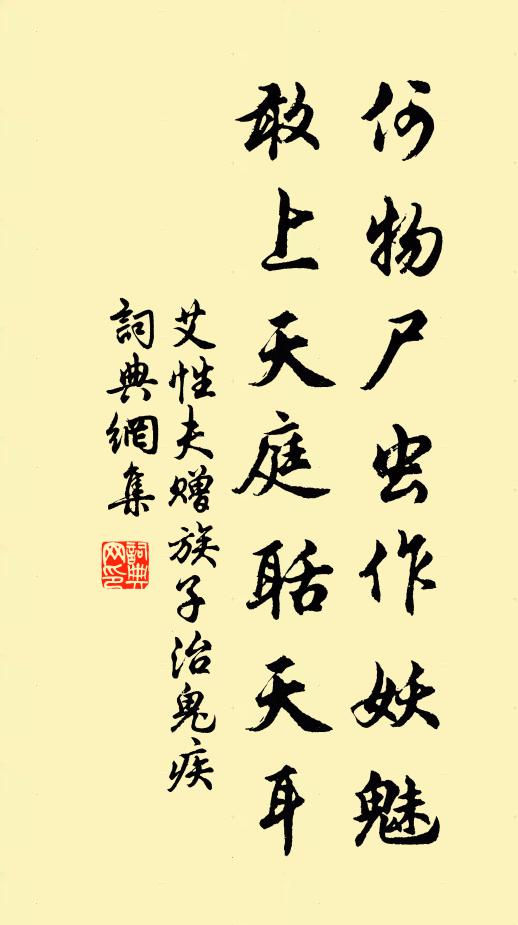 何物尸虫作妖魅
敢上天庭聒天耳
艾性夫赠族子治鬼疾
詞典網集
詞典网印